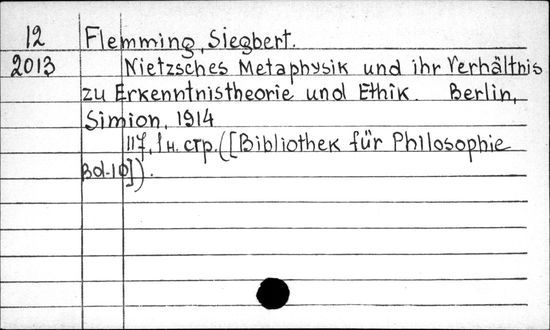 12 Flemming, Siegbert.
2013 Nietzsches Metaphysik und ihr Verhältnis
zu Erkenntnistheorie und Ethik. Berlin,
Simion, 1914
117, 1 н. стр. ([Bibliothek für Philosophie
Bd. 10]).